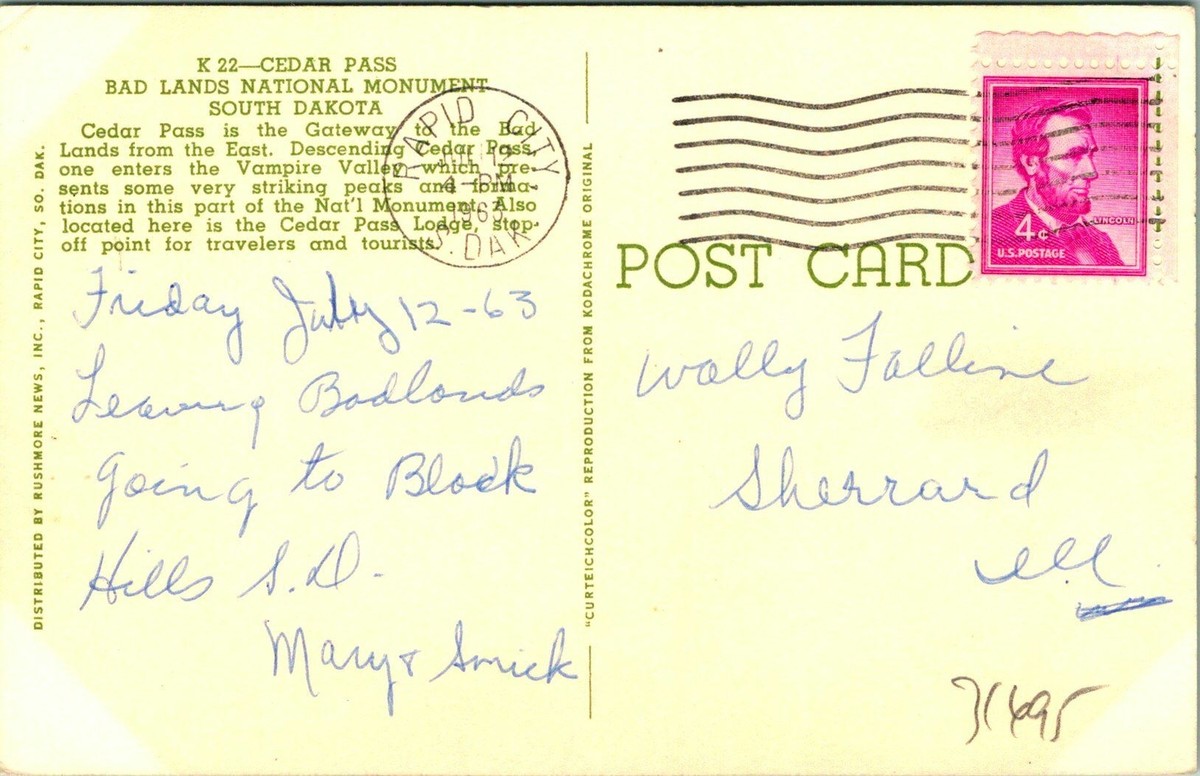 K 22—CEDAR PASS
BAD LANDS NATIONAL MONUMENT
SOUTH DAKOTA
Cedar Pass is the Gateway to the Bad
Lands from the East. Descending Cedar Pass,
one enters the Vampire Valley which pre-
sents some very striking peaks and forma-
tions in this part of the Nat'l Monument. Also
located here is the Cedar Pass Lodge, stop-
off point for travelers and tourists.
Friday July 12-63
Leaving Badlands
going to Black
Hills S.D.
Mary & Smick
DISTRIBUTED BY RUSHMORE NEWS, INC., RAPID CITY, SO. DAK.
"CURTEICHCOLOR" REPRODUCTION FROM KODACHROME ORIGINAL
RAPID CITY
JUL 12
4 PM
1963
S. DAK.
LINCOLN
4¢
U.S. POSTAGE
POST CARD
Wally Falline
Sherrard
Ill.